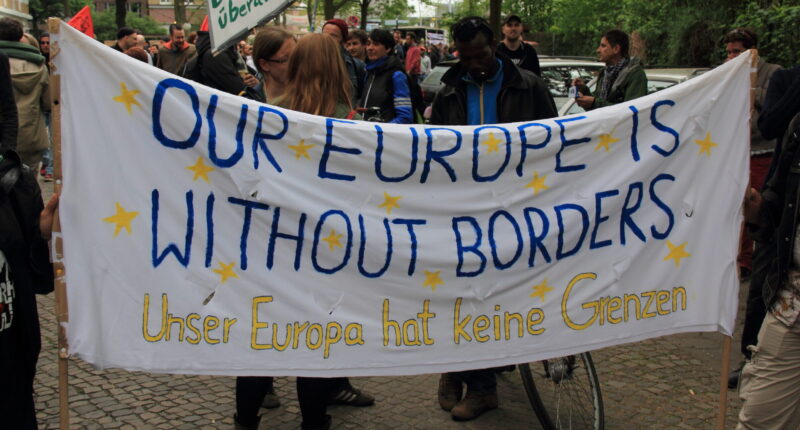 überall
OUR EUROPE IS
WITHOUT BORDERS
Unser Europa hat keine Grenzen